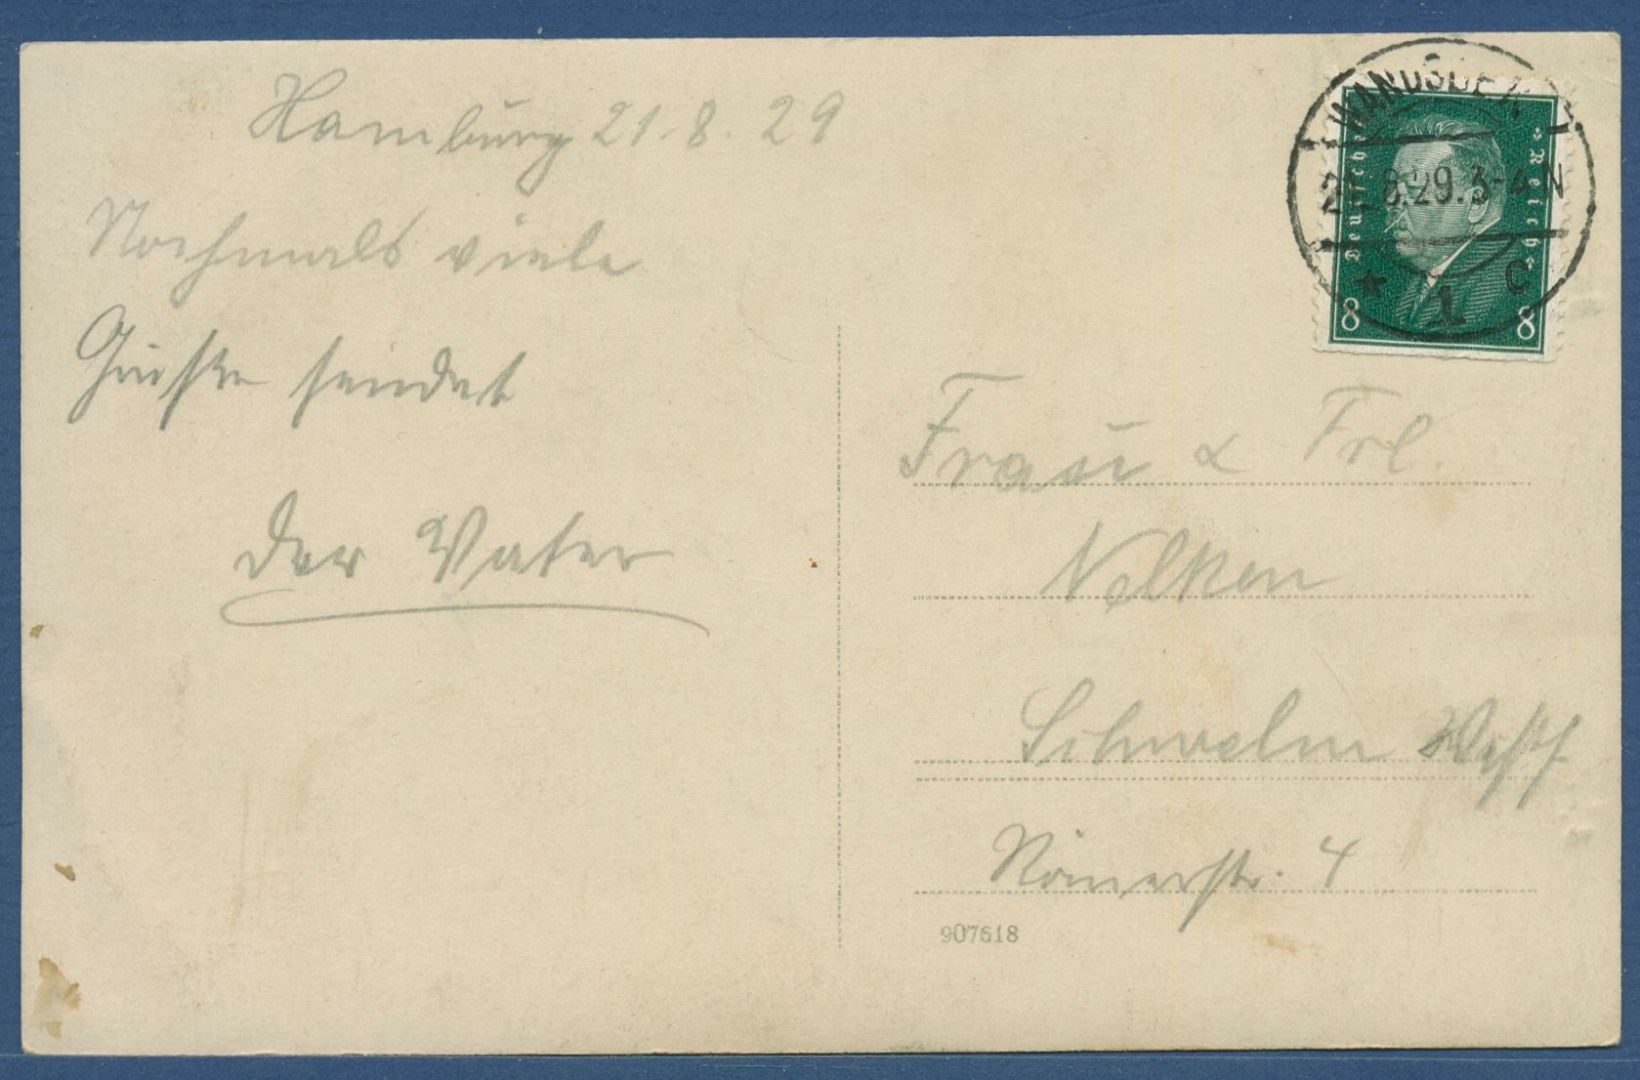 Hamburg 21 8. 29
Nochmals viele
Grüße sendet
der Vater
WANDSBEK 1
21.8.29.3-4N
* 1 c
Deutsches Reich
8 8
Frau & Frl.
Nelken
Schwelm Westf
Römerstr. 4
907618